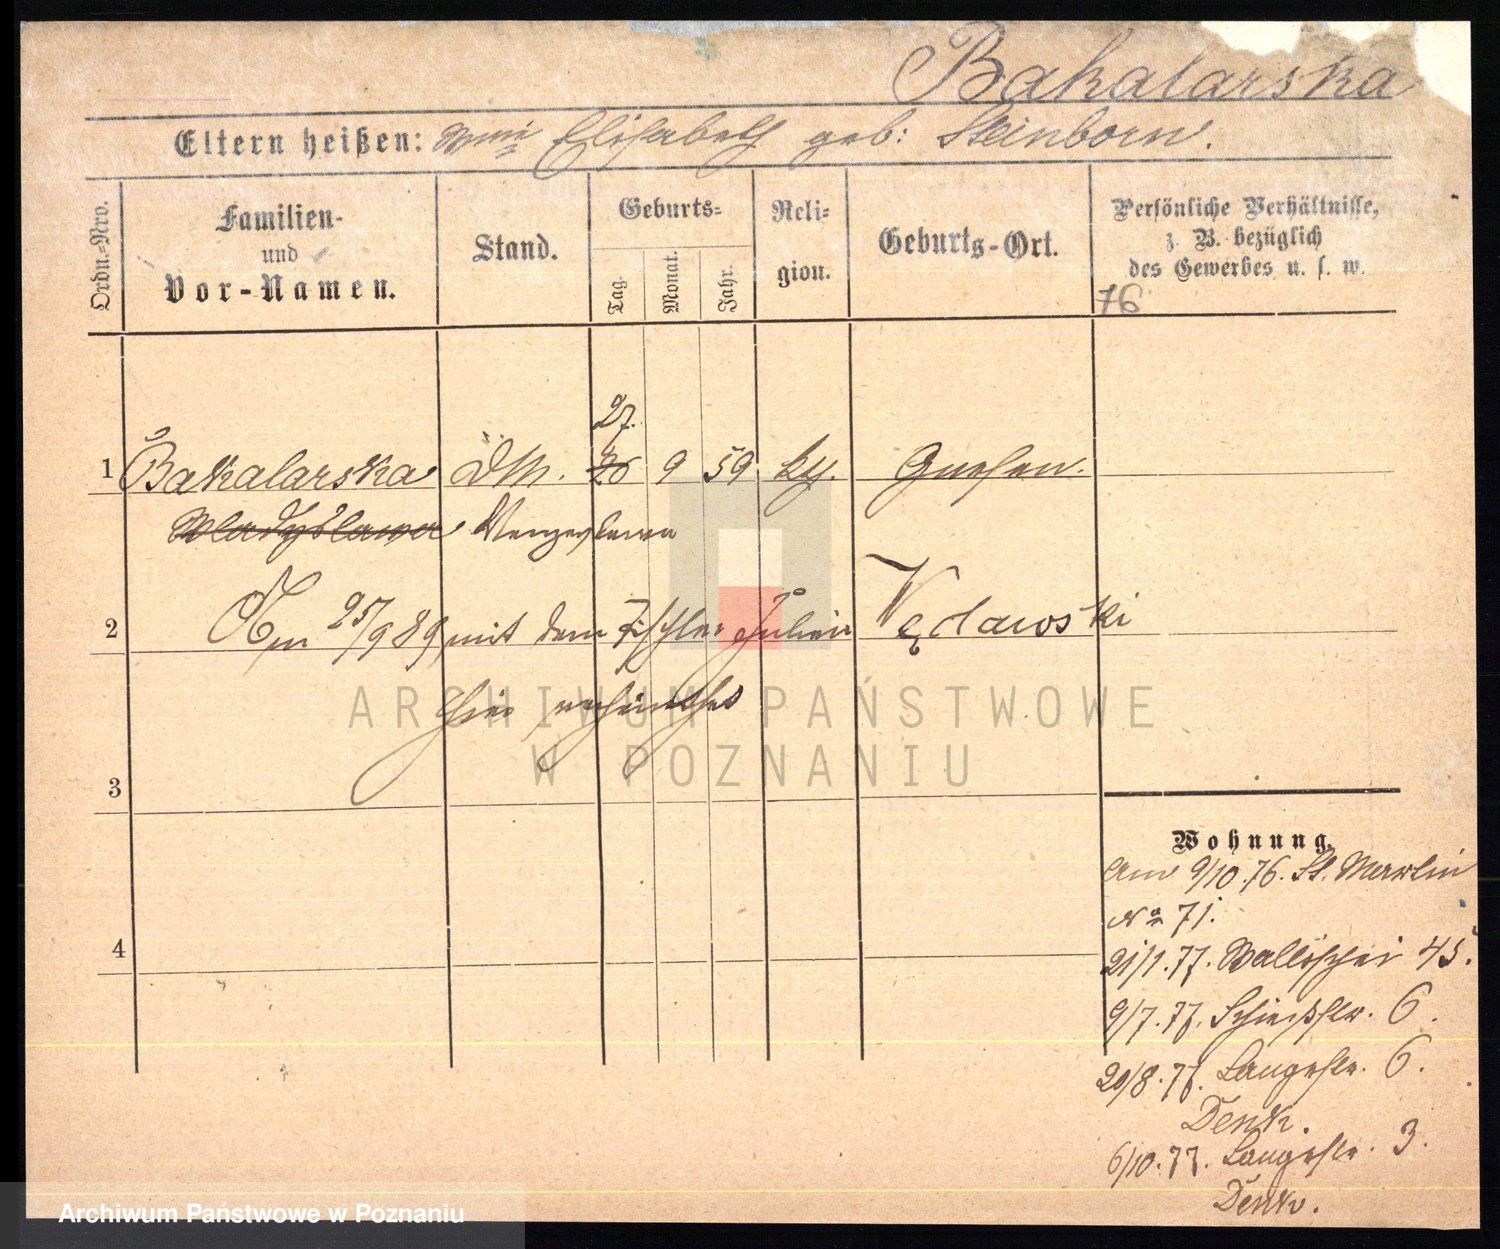 Bakalarska
Eltern heißen: Elisabeth geb: Steinborn.
Ordn.-Nro.
Familien-
und
Vor-Namen.
Stand.
Geburts-
Tag.
Monat.
Jahr.
Reli-
gion.
Geburts-Ort.
Persönliche Verhältnisse,
z. B. bezüglich
des Gewerbes u. s. w.
76
27.
1 Bakalarska 26 9 59 Gnesen.
Wladyslawa
2 Am 25/9 89 mit dem Tischler Julian Wędawski
hier
3
4
Wohnung.
Am 9/10.76. St. Martin
No 71.
21/1.77. Wallischei 45.
9/7.77. Schießstr. 6.
20/8.77. Langestr. 6.
Denk.
6/10.77. Langestr. 3.
Denk.
ARCHIWUM PAŃSTWOWE
W POZNANIU
Archiwum Państwowe w Poznaniu